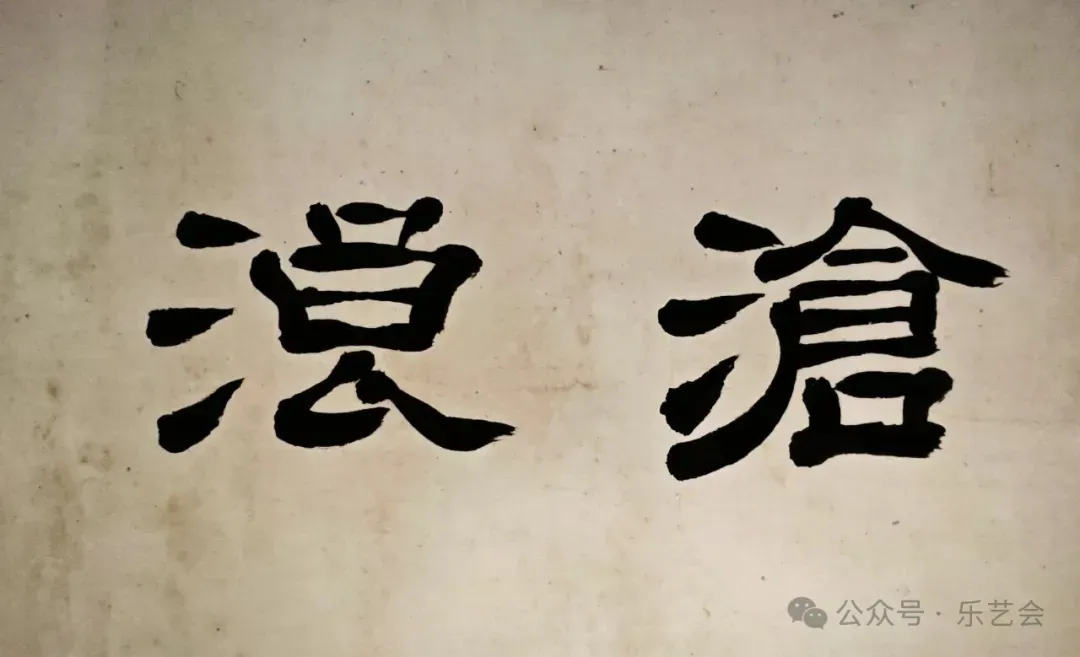 滄浪
公众号·乐艺会